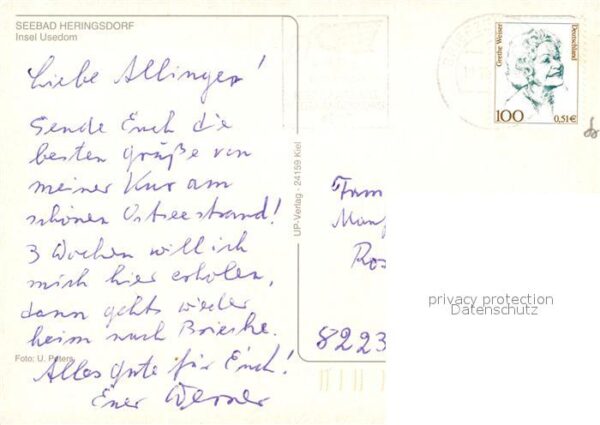 SEEBAD HERINGSDORF
Insel Usedom
Liebe Allinger!
Sende Euch die
besten Grüße von
meiner Kur am
schönen Ostseestrand!
3 Wochen will ich
mich hier erholen,
dann gehts wieder
heim nach Brieske.
Alles gute für Euch!
Euer Werner
Foto: U. Peters
UP-Verlag · 24159 Kiel
Grethe Weiser
Deutschland
100
0,51€
Fam
Manf
Ros
8223
privacy protection
Datenschutz